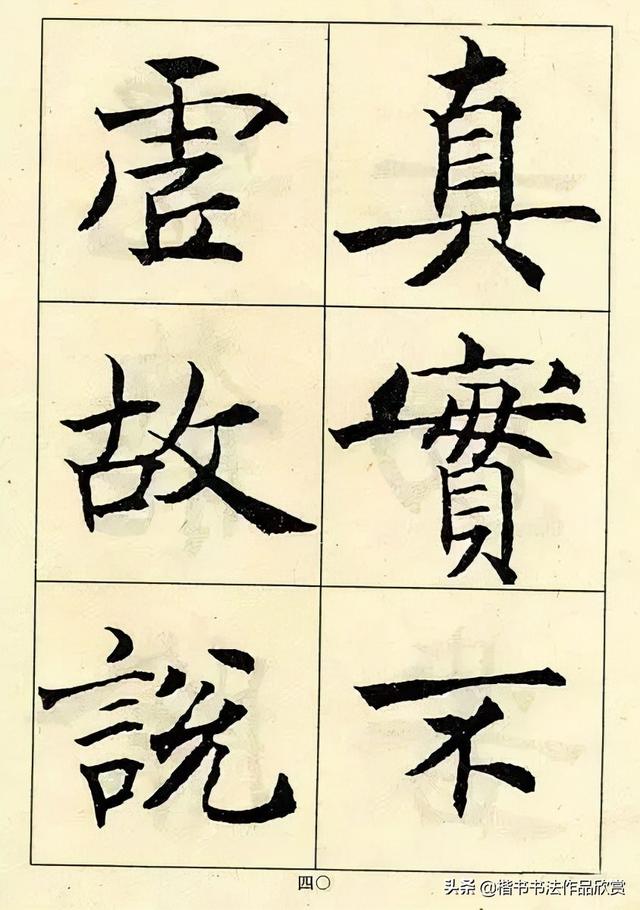 真實不
虛故說
四〇
头条 @楷书书法作品欣赏